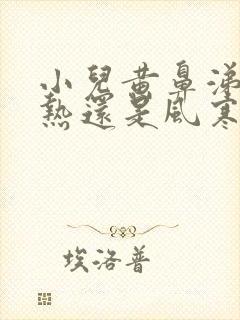 小兒黃鼻涕
熱還是風寒
埃洛普